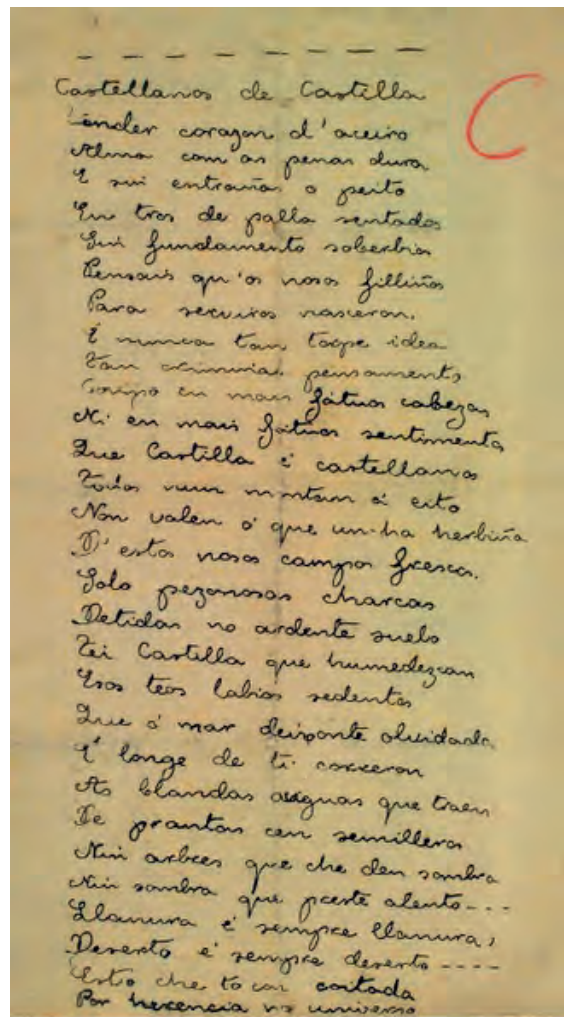 — — — — — — —
C
Castellanos de Castilla
tender corazon d'aceiro
Alma com as penas dura
E sin entrañas o peito
En tros de palla sentados
Sin fundamento soberbios
Pensais qu'os nosos filliños
Para serviros nasceron.
E nunca tan torpe idea
Tan criminal pensamento
en mais fatuas cabezas
Ni en mais fatuos sentimentos
Que Castilla é castellanos
Todos nun montom á eito
Non valen ó que un-ha herbiña
D'estos nosos campos frescos.
Solo pezonosas charcas
Detidas no ardente suelo
Tei Castilla que humedezcan
Esos teos labios sedentos
Que ó mar deixoute olvidada
E longe de ti correron
As blandas auguas que traen
De prantas cen semilleros
Nin arbres que che den sombra
Nin sombra que preste alento---
Llanura é sempre llanura,
Deserto é sempre deserto----
Esto che to cou coitada
Por herencia no universo